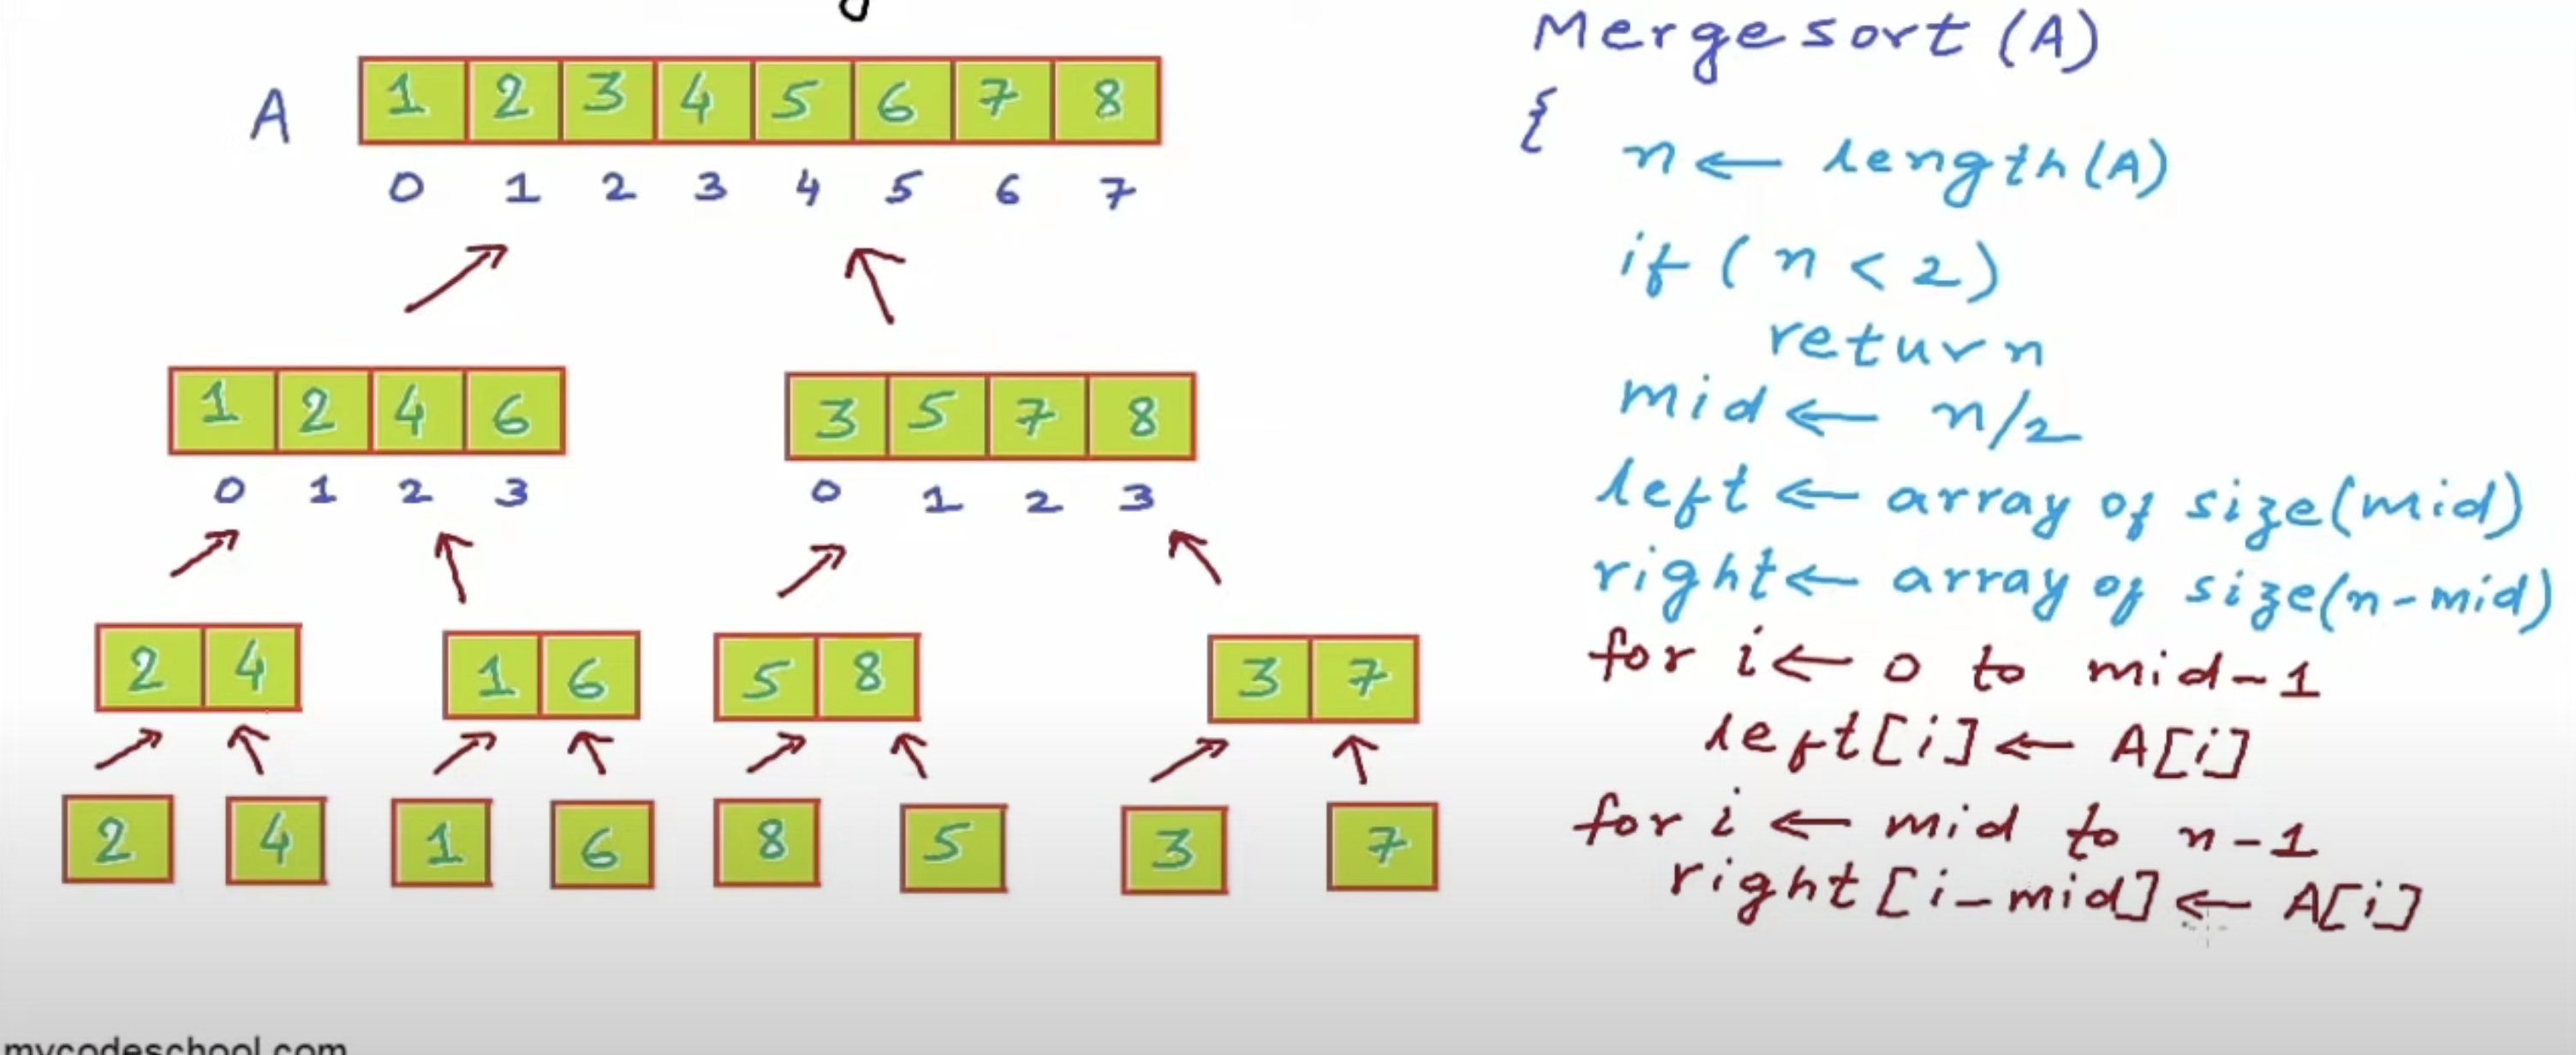 A 1 2 3 4 5 6 7 8
0 1 2 3 4 5 6 7
1 2 4 6
0 1 2 3
3 5 7 8
0 1 2 3
2 4
1 6
5 8
3 7
2 4 1 6 8 5 3 7
Mergesort (A)
{
n ← length(A)
if ( n < 2)
return
mid ← n/2
left ← array of size(mid)
right ← array of size(n-mid)
for i ← 0 to mid-1
left[i] ← A[i]
for i ← mid to n-1
right[i-mid] ← A[i]
mycodeschool.com